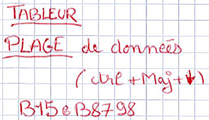 TABLEUR
PLAGE de données
(ctrl + Maj + ↓)
B15 à B8798